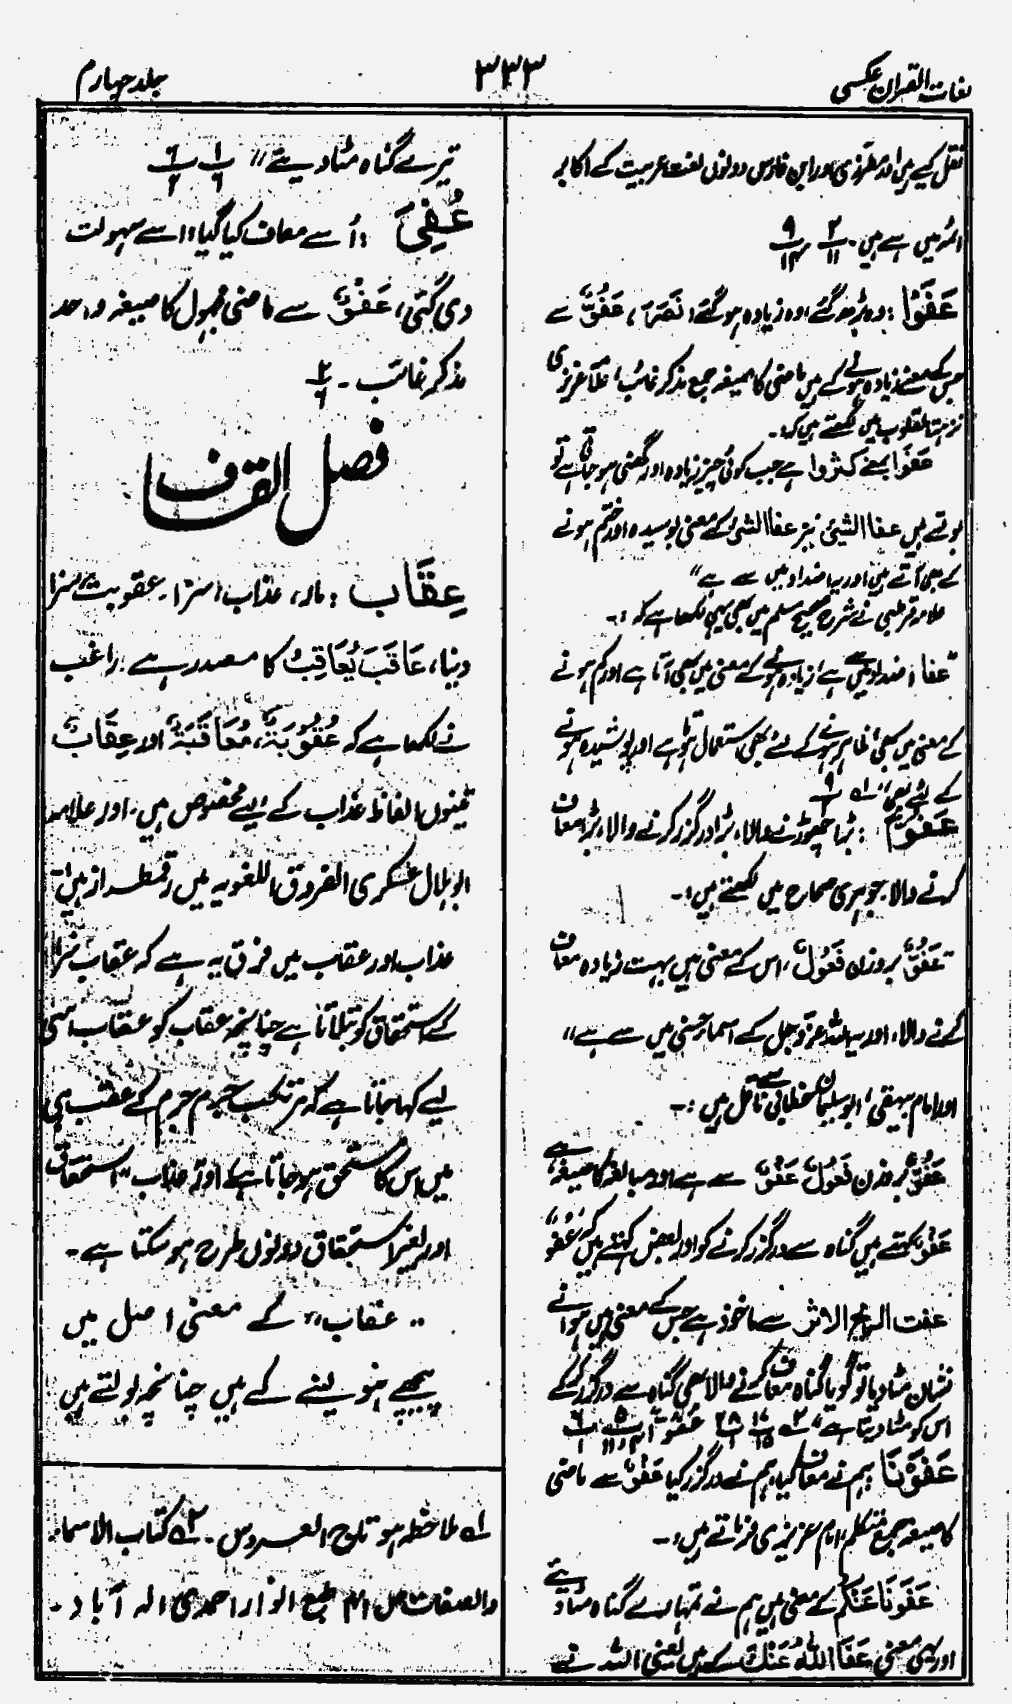 لغات القرآن عکسی
۳۳۳
جلد چہارم
نقل کیے ہیں اور مطرزی اور ابن فارس دونوں لغت عربیت کے اکابر
ائمہ میں سے ہیں۔ ۲/۱۱ ۹/۱۴
عَفَوْا : وہ بڑھ گئے، وہ زیادہ ہو گئے (نَصَرَ)، عَفْوٌ سے
جس کے معنے زیادہ ہونے کے ہیں ماضی کا صیغہ جمع مذکر غائب، علامہ عزیزی
نزہۃ القلوب میں لکھتے ہیں کہ:۔
عَفَوا بمعنے کثروا ہے جب کوئی چیز زیادہ اور گھنی ہو جاتی ہے تو
بولتے ہیں عفا الشیئ نیز عفا الشئ کے معنی بوسیدہ اور ختم ہونے
کے بھی آتے ہیں اور یہ اضداد میں سے ہے"
علامہ قرطبی نے شرح صحیح مسلم میں بھی یہی لکھا ہے کہ :۔
"عفا اضداد میں سے ہے، زیادہ ہونے کے معنی میں بھی آتا ہے اور کم ہونے
کے معنی میں بھی، ظاہر ہونے کے لئے بھی استعمال ہوتا ہے اور پوشیدہ ہونے
کے لئے بھی" لہ ۹
عَفُوٌّ : بڑا چھوڑنے والا، بڑا درگزر کرنے والا، بڑا معاف
کرنے والا۔ جوہری صحاح میں لکھتے ہیں :۔
"عَفُوٌّ بروزن فَعُولٌ، اس کے معنی ہیں بہت زیادہ معاف
کرنے والا، اور یہ اللہ عز و جل کے اسماء حسنی میں سے ہے"
اور امام بیہقی، ابو سلیمان خطابی سے ناقل ہیں :۔
عَفُوٌّ بروزن فَعُولٌ عَفْوٌ سے ہے اور مبالغہ کا صیغہ ہے
عَفْوٌ کہتے ہیں گناہ سے درگزر کرنے کو اور بعض کہتے ہیں کہ عَفْوٌ
عفت الریح الاثر سے ماخوذ ہے جس کے معنی ہیں ہوا نے
نشان مٹا دیا تو گویا گناہ معاف کرنے والا بھی گناہ سے درگزر کر کے
اس کو مٹا دیتا ہے" ۲ ۱۷/۱۵ ۲۸/۱ عَفُوًّا ۵/۴، ۱۱ ۶/۱
عَفَوْنَا ہم نے معاف کیا، ہم نے درگزر کیا عَفْوٌ سے ماضی
کا صیغہ جمع متکلم، امام عزیزی فرماتے ہیں :۔
عَفَوْنَا عَنْكُمْ کے معنی ہیں ہم نے تمہارے گناہ مٹا دیئے
اور یہی معنی عَفَا اللّٰهُ عَنْكَ کے ہیں یعنی اللہ نے
تیرے گناہ مٹا دیئے" ۱/۶ ۶/۲
عُفِيَ : اُسے معاف کیا گیا، اسے سہولت
دی گئی، عَفْوٌ سے ماضی مجہول کا صیغہ واحد
مذکر غائب ۔ ۲/۶
فصل القاف
عِقَاب : مار، عذاب، سزا۔ عقوبت، سزا
دینا، عَاقَبَ يُعَاقِبُ کا مصدر ہے۔ راغب
نے لکھا ہے کہ عُقُوْبَةٌ، مُعَاقَبَةٌ اور عِقَابٌ
تینوں الفاظ عذاب کے لیے مخصوص ہیں۔ اور علامہ
ابو ہلال عسکری الفروق اللغویہ میں رقمطراز ہیں:
عذاب اور عقاب میں فرق یہ ہے کہ عقاب سزا
کے استحقاق کو بتلاتا ہے چنانچہ عقاب کو عقاب اسی
لیے کہا جاتا ہے کہ مرتکب جرم جرم کے عقب ہی
میں اس کا مستحق ہو جاتا ہے اور عذاب با استحقاق
اور بغیر استحقاق دونوں طرح ہو سکتا ہے۔
"عقاب" کے معنی اصل میں
پیچھے ہو لینے کے ہیں چنانچہ بولتے ہیں
لہ ملاحظہ ہو تاج العروس۔ ۲ کتاب الاسماء
والصفات ص ۴۱ طبع انوار احمدی الہ آباد۔